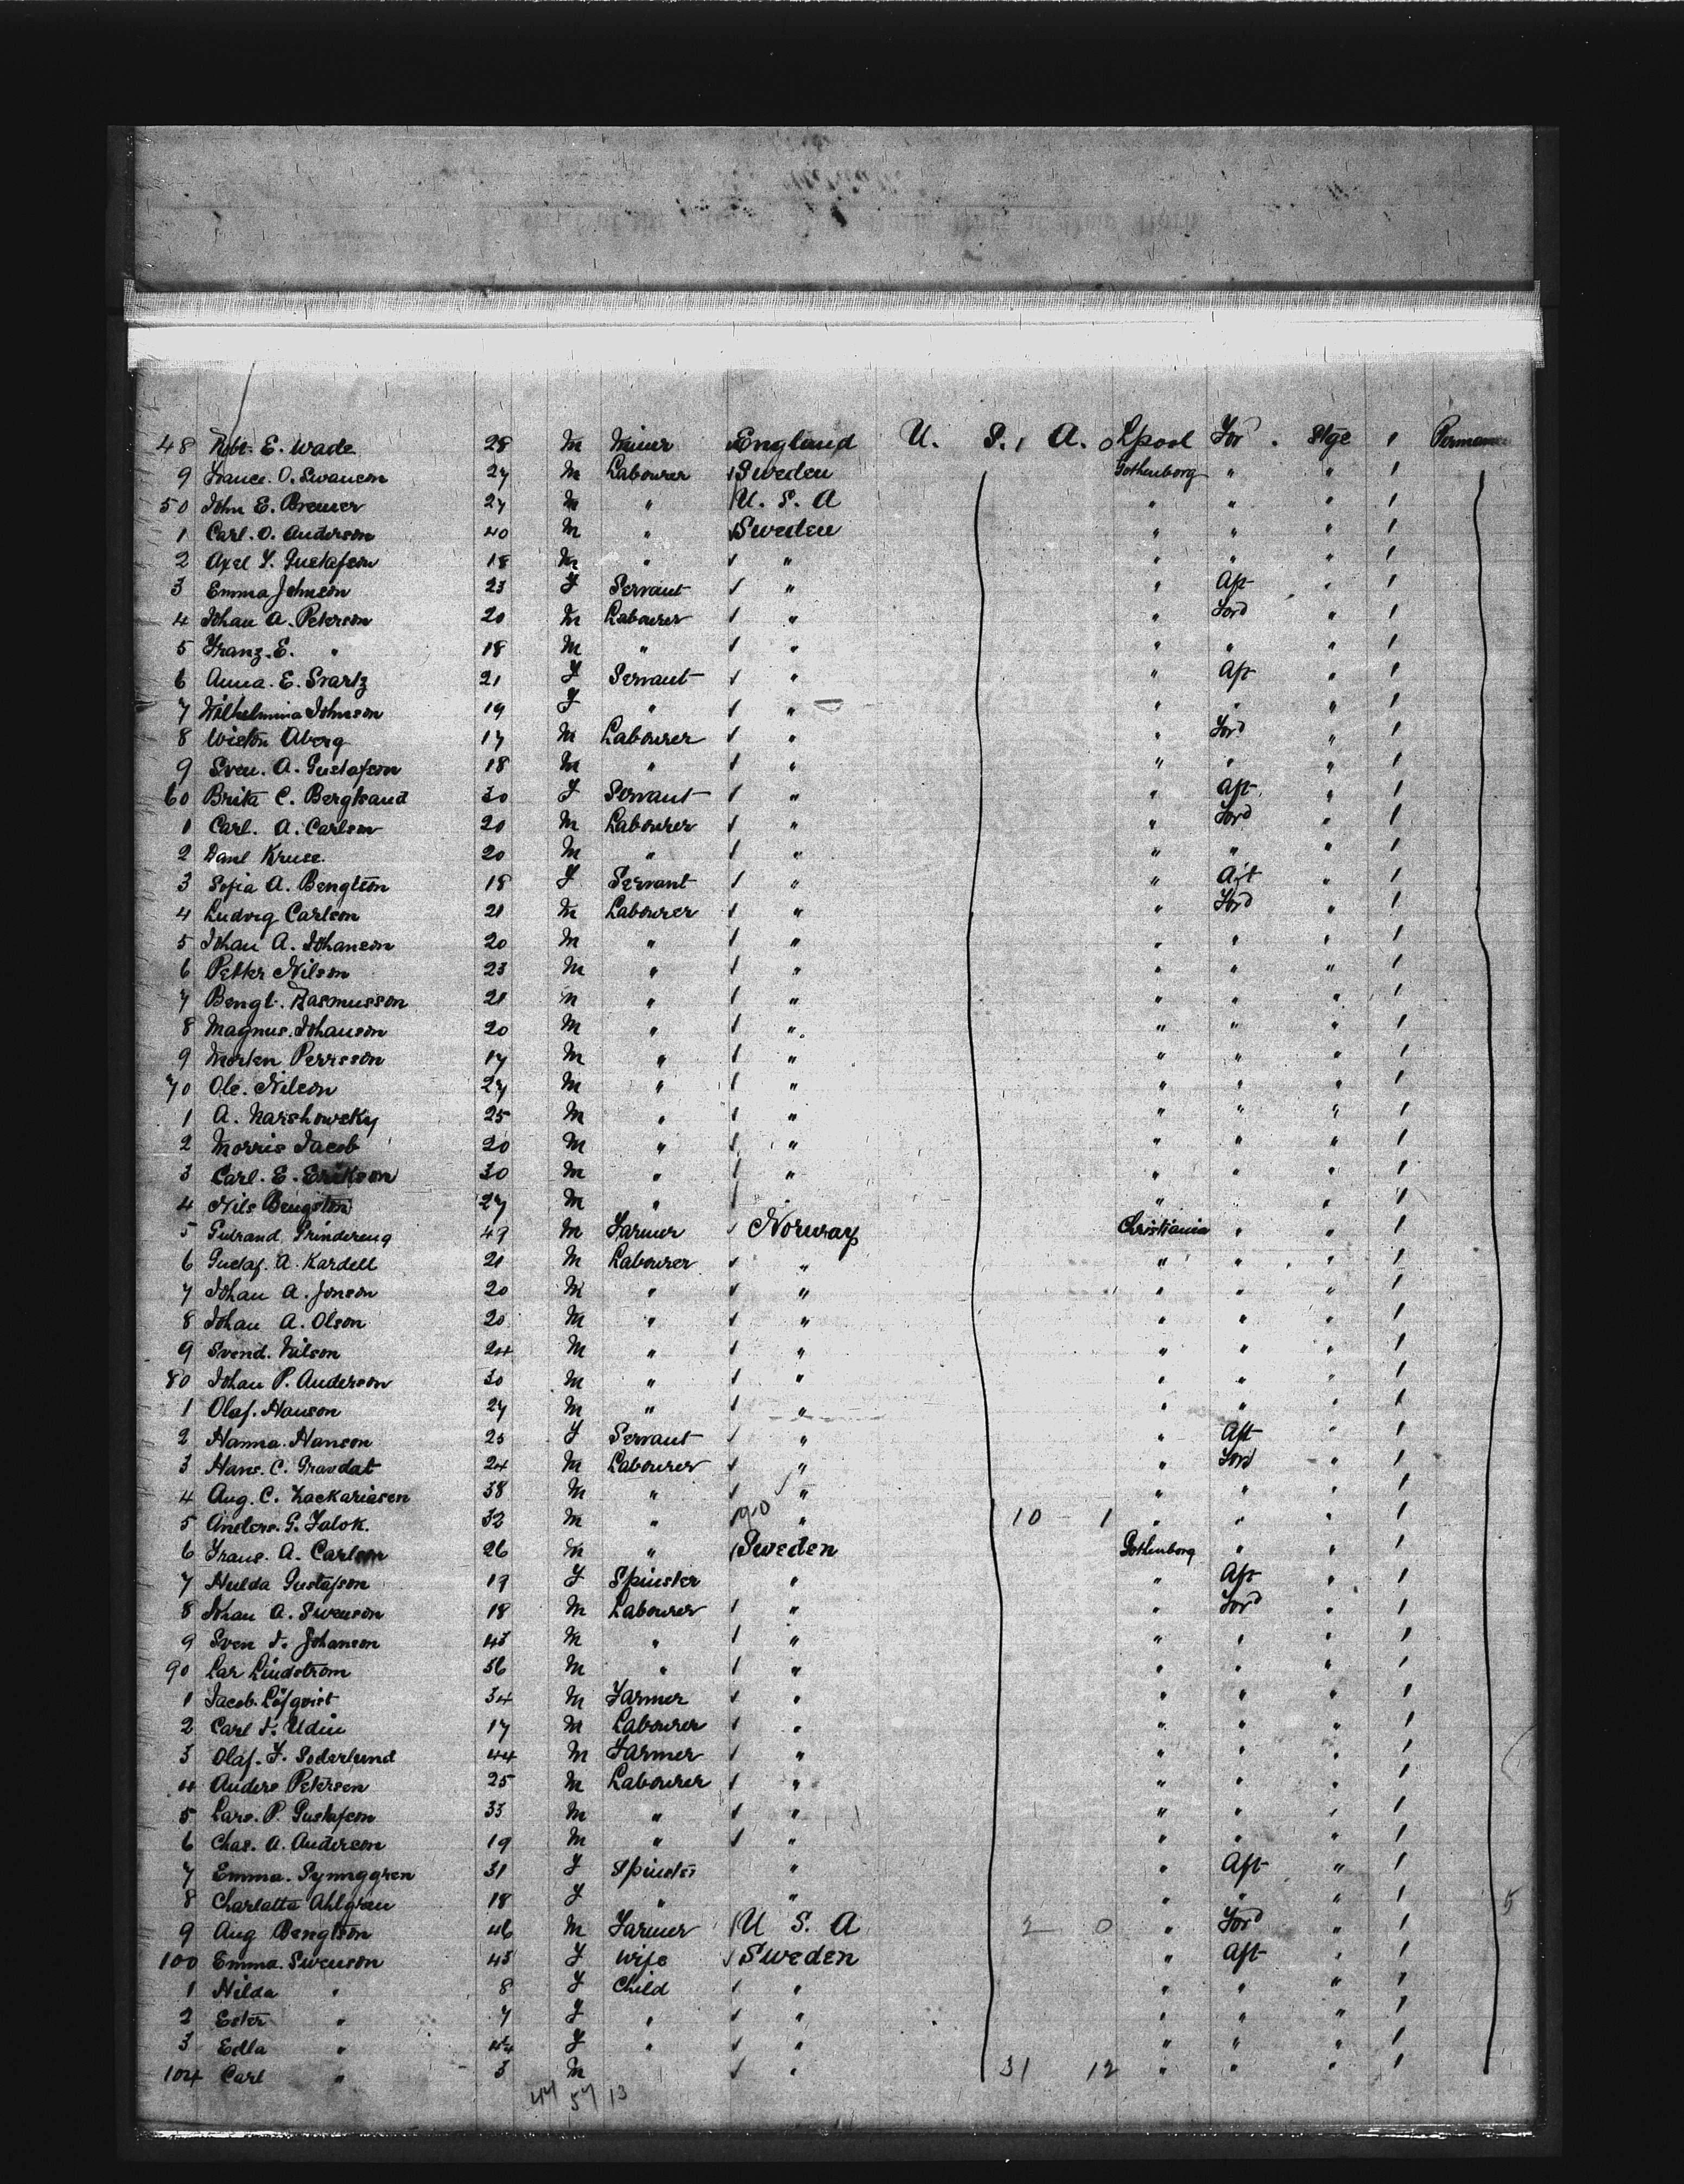 48 Robt. E. Wade 28 M Miner England U. S. A. Lpool For. Stge 1 Permanent
9 France. O. Swanson 27 M Labourer Sweden Gothenborg " " 1
50 John E. Brewer 27 M " U. S. A " " " 1
1 Carl. O. Anderson 40 M " Sweden " " " 1
2 Axel L. Gustafson 18 M " " " " " 1
3 Emma Johnson 23 F Servant " " Aft " 1
4 Johan A. Peterson 20 M Labourer " " Ford " 1
5 Franz. E. " 18 M " " " " " 1
6 Anna. E. Svartz 21 F Servant " " Aft " 1
7 Wilhelmina Johnson 19 F " " " " " 1
8 Victor Aberg 17 M Labourer " " Ford " 1
9 Sven. A. Gustafson 18 M " " " " " 1
60 Brita C. Bergsand 30 F Servant " " Aft " 1
1 Carl. A. Carlson 20 M Labourer " " Ford " 1
2 Danl Kruse 20 M " " " " " 1
3 Sofia A. Bengtson 18 F Servant " " Aft " 1
4 Ludvig Carlson 21 M Labourer " " Ford " 1
5 Johan A. Johanson 20 M " " " " " 1
6 Petter Nilson 23 M " " " " " 1
7 Bengt. Rasmusson 21 M " " " " " 1
8 Magnus. Johanson 20 M " " " " " 1
9 Morten Perrsson 17 M " " " " " 1
70 Ole. Nilson 27 M " " " " " 1
1 A. Narshowsky 25 M " " " " " 1
2 Morris Jacob 20 M " " " " " 1
3 Carl. E. Erikson 30 M " " " " " 1
4 Nils Bengston 27 M " " " " " 1
5 Gulrand Grindereng 49 M Farmer Norway Christiania " " 1
6 Gustaf. A. Kardell 21 M Labourer " " " " 1
7 Johan A. Jonson 20 M " " " " " 1
8 Johan A. Olson 20 M " " " " " 1
9 Svend. Nilson 24 M " " " " " 1
80 Johan P. Anderson 30 M " " " " " 1
1 Olaf. Hanson 27 M " " " " " 1
2 Hanna. Hanson 25 F Servant " " Aft " 1
3 Hans. C. Gravdat 24 M Labourer " " Ford " 1
4 Aug. C. Zackariasen 38 M " " " " " 1
5 Anders. G. Falok. 32 M " " 10 - 1 " " " 1
6 Frans. A. Carlson 26 M " Sweden Gothenborg " " 1
7 Hulda Gustafson 19 F Spinster " " Aft " 1
8 Johan A. Swenson 18 M Labourer " " Ford " 1
9 Sven J. Johanson 43 M " " " " " 1
90 Lar Lindstrom 56 M " " " " " 1
1 Jacob. Löfqvist 34 M Farmer " " " " 1
2 Carl J. Udin 17 M Labourer " " " " 1
3 Olaf. F. Soderlund 44 M Farmer " " " " 1
4 Anders Peterson 25 M Labourer " " " " 1
5 Lars. P. Gustafson 33 M " " " " " 1
6 Chas. A. Anderson 19 M " " " " " 1
7 Emma. 31 F Spinster " " Aft " 1
8 Charlatta Ahlgren 18 F " " " " " 1
9 Aug Bengtson 46 M Farmer U S. A 2 0 " Ford " 1
100 Emma. Swenson 43 F Wife Sweden " Aft " 1
1 Hilda " 8 F Child " " " " 1
2 Ester " 7 F " " " " " 1
3 Edla " 4 F " " " " " 1
104 Carl " 3 M " 31 12 " " " 1
47 57 13